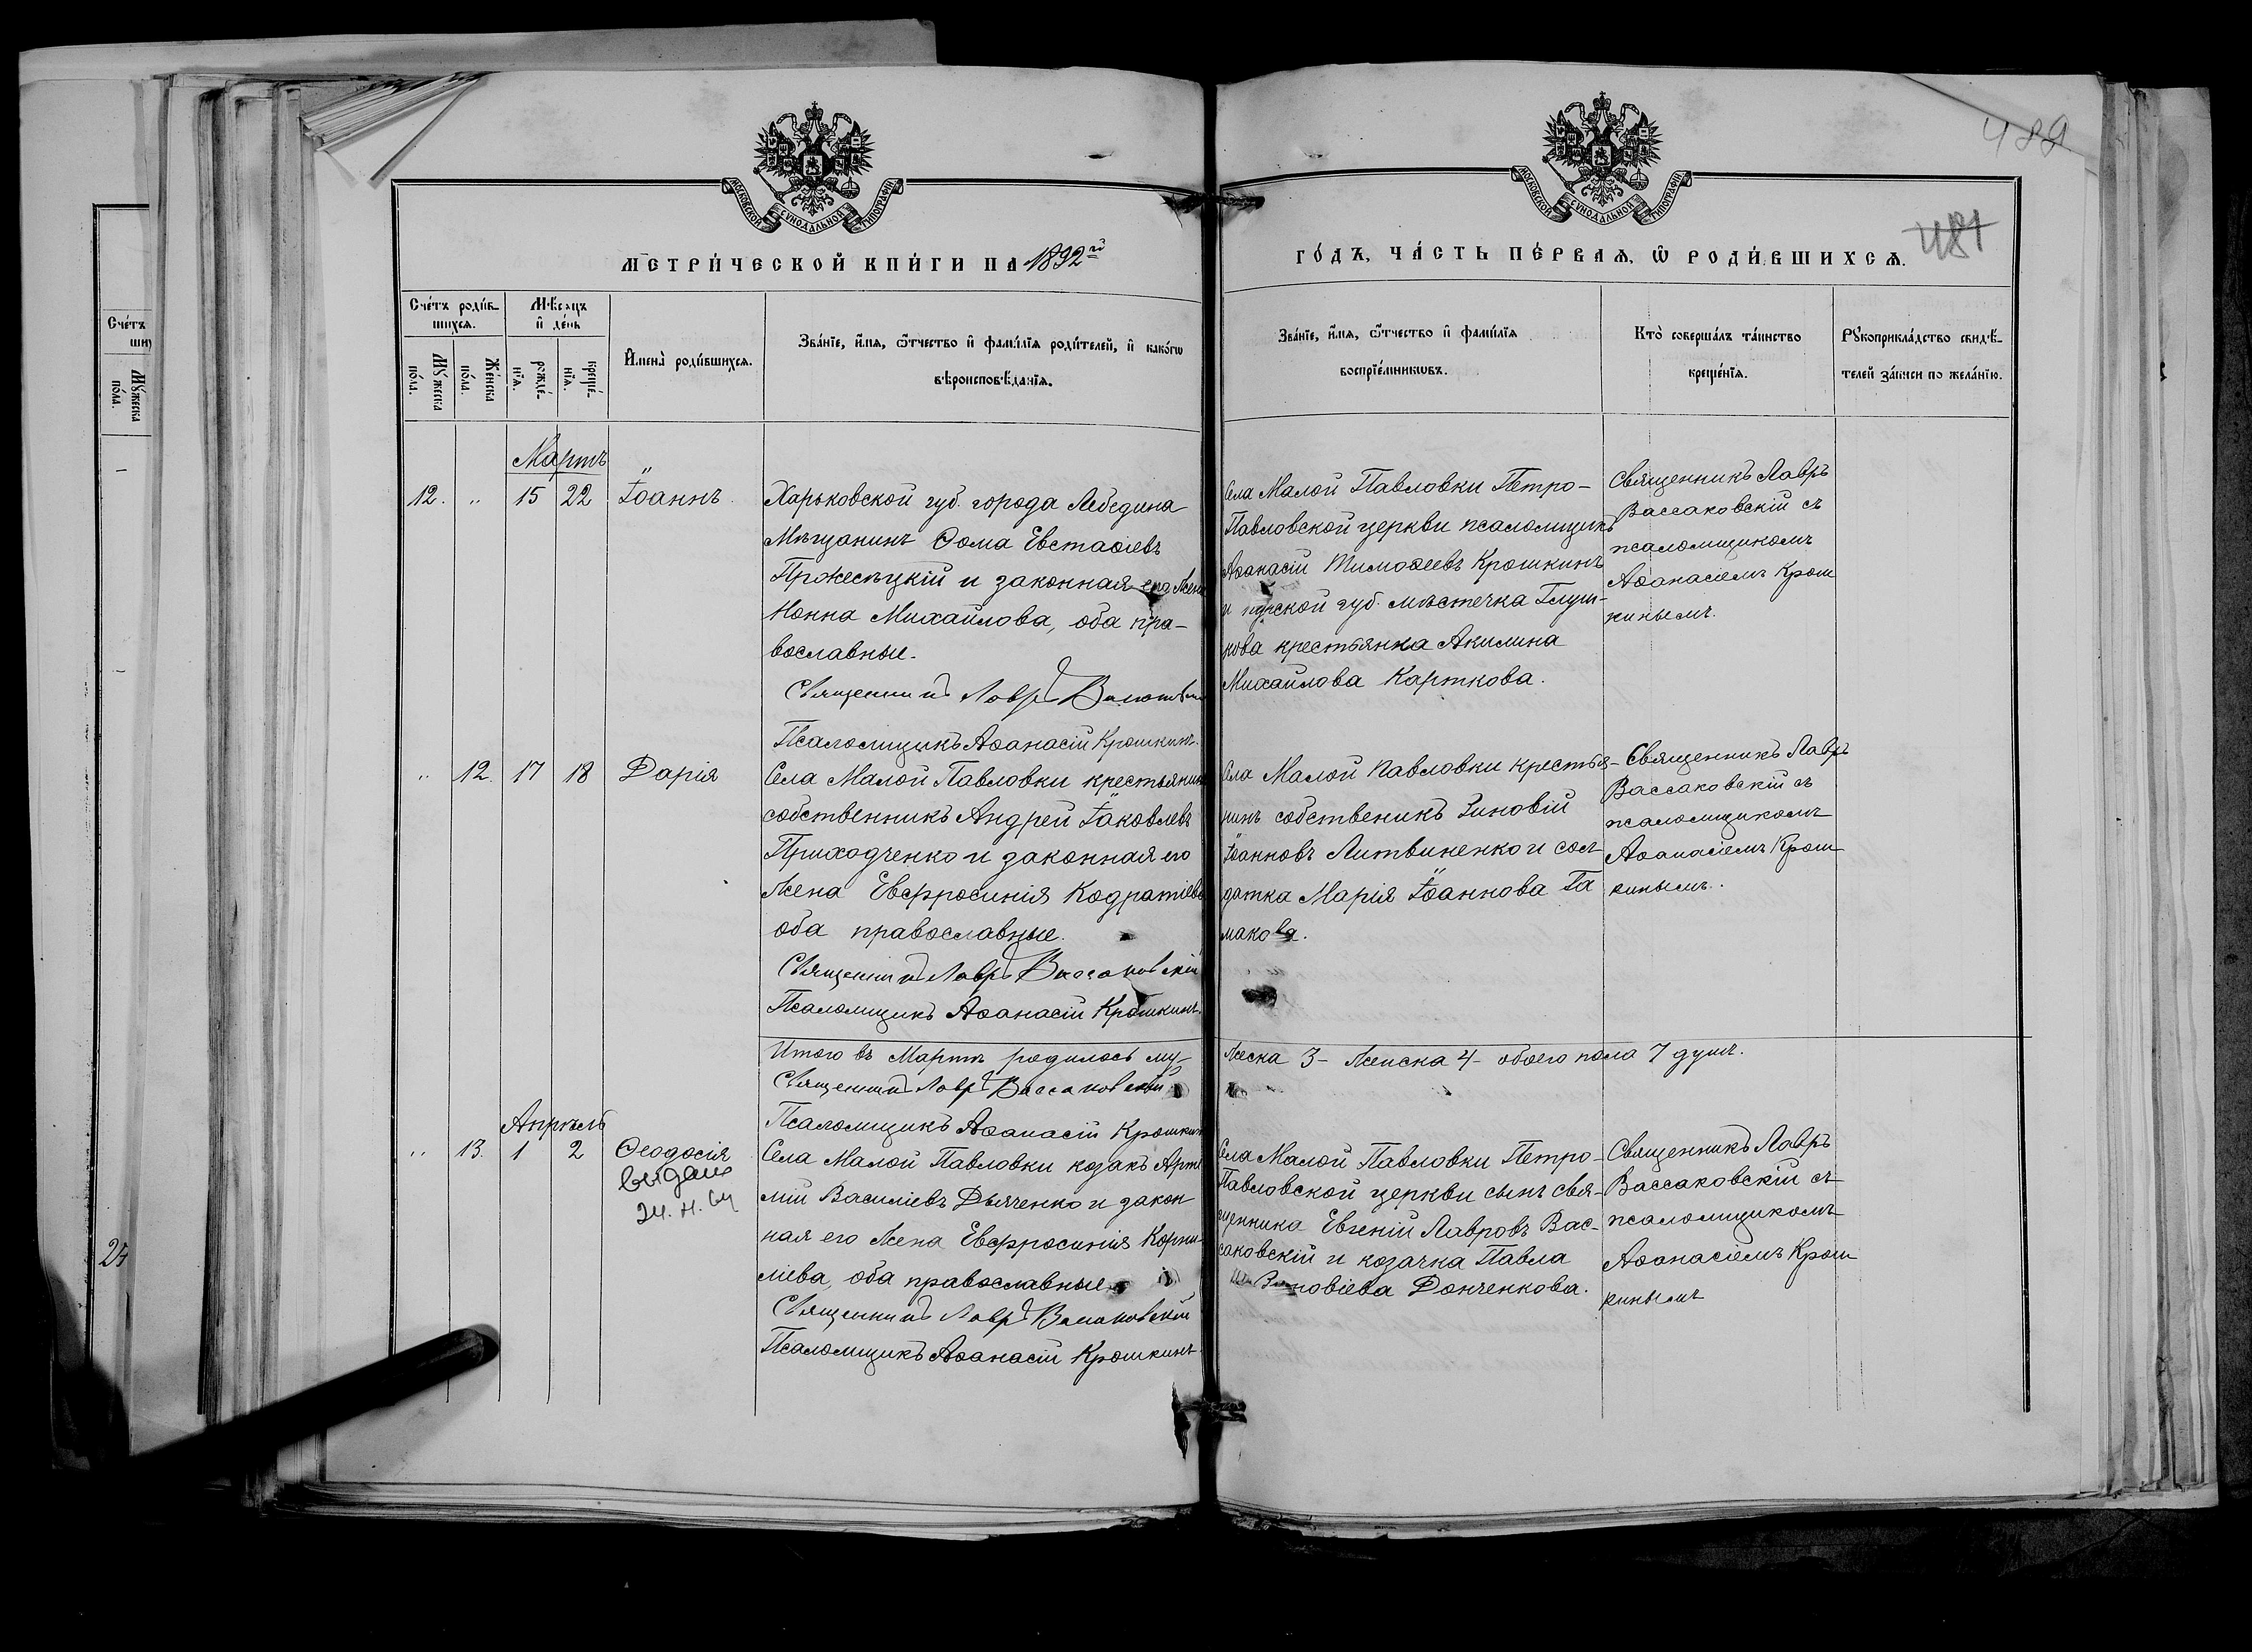 489
481
МОСКОВСКОЙ СѴНОДАЛЬНОЙ ТИПОГРАФІИ
МОСКОВСКОЙ СѴНОДАЛЬНОЙ ТИПОГРАФІИ
МЕТРИ́ЧЕСКОЙ КНИ́ГИ НА 1892й
ГО́ДЪ, ЧА́СТЬ ПЕ́РВАЯ, Ѽ РОДИ́ВШИХСЯ.
Сче́тъ роди́в-
шихся.
Мѣсяцъ
и де́нь
Мꙋ́жеска
по́ла.
Же́нска
по́ла.
рожде́-
нїя.
креще́-
нїя.
И҆мена̀ роди́вшихся.
Зва́нїе, и҆́мя, ѻ҆́тчество и҆ фами́лїя роди́телей, и҆ како́гѡ
вѣроисповѣ́данїя.
Зва́нїе, и҆́мя, ѻ҆́тчество и҆ фами́лїя
воспрїе́мникѡвъ.
Кто̀ соверша́лъ та́инство
креще́нїя.
Рꙋкоприкла́дство свидѣ́-
телей за́писи по жела́нїю.
Сче́тъ
Мꙋ́жеска
по́ла.
24
Мартъ
12. " 15 22 Іоаннъ
Харьковской губ. города Лебедина
Мѣщанинъ Ѳома Евстаѳіевъ
и законная его жена
Нонна Михайлова, оба пра-
вославные.
Священникъ Лавръ Вассаковскій
Псаломщикъ Аѳанасій Крошкинъ.
Села Малой Павловки Петро-
Павловской церкви псаломщикъ
Аѳанасій Тимоѳеевъ Крошкинъ
и губ. мѣстечка Глуш-
кова крестьянка Акилина
Михайлова Карткова.
Священникъ Лавръ
Вассаковскій съ
псаломщикомъ
Аѳанасіемъ Крош
кинымъ.
" 12. 17 18 Дарія
Села Малой Павловки крестьянинъ
собственникъ Андрей Іаковлевъ
Приходченко и законная его
жена Евфросинія Кодратіева
оба православные.
Священникъ Лавръ Вассаковскій
Псаломщикъ Аѳанасій Крошкинъ.
Села Малой Павловки крестья-
нинъ собственикъ Зиновій
Іоанновъ Литвиненко и сол-
датка Марія Іоаннова Га
макова.
Священникъ Лавръ
Вассаковскій съ
псаломщикомъ
Аѳанасіемъ Крош
кинымъ.
Итого въ Мартѣ родилось му-
жеска 3 - женска 4 - обоего пола 7 душъ.
Священникъ Лавръ Вассаковскій
Псаломщикъ Аѳанасій Крошкинъ
Апрѣль
" 13. 1 2 Ѳеодосія
Села Малой Павловки козакъ Арте
мій Василіевъ Дьяченко и закон
ная его жена Евфросинія Корни-
ліева, оба православные.
Священникъ Лавръ Вассаковскій
Псаломщикъ Аѳанасій Крошкинъ
Села Малой Павловки Петро-
Павловской церкви сынъ свя-
щенника Евгеній Лавровъ Вас-
саковскій и козачка Павла
Зиновіева Донченкова.
Священникъ Лавръ
Вассаковскій съ
псаломщикомъ
Аѳанасіемъ Крош
кинымъ